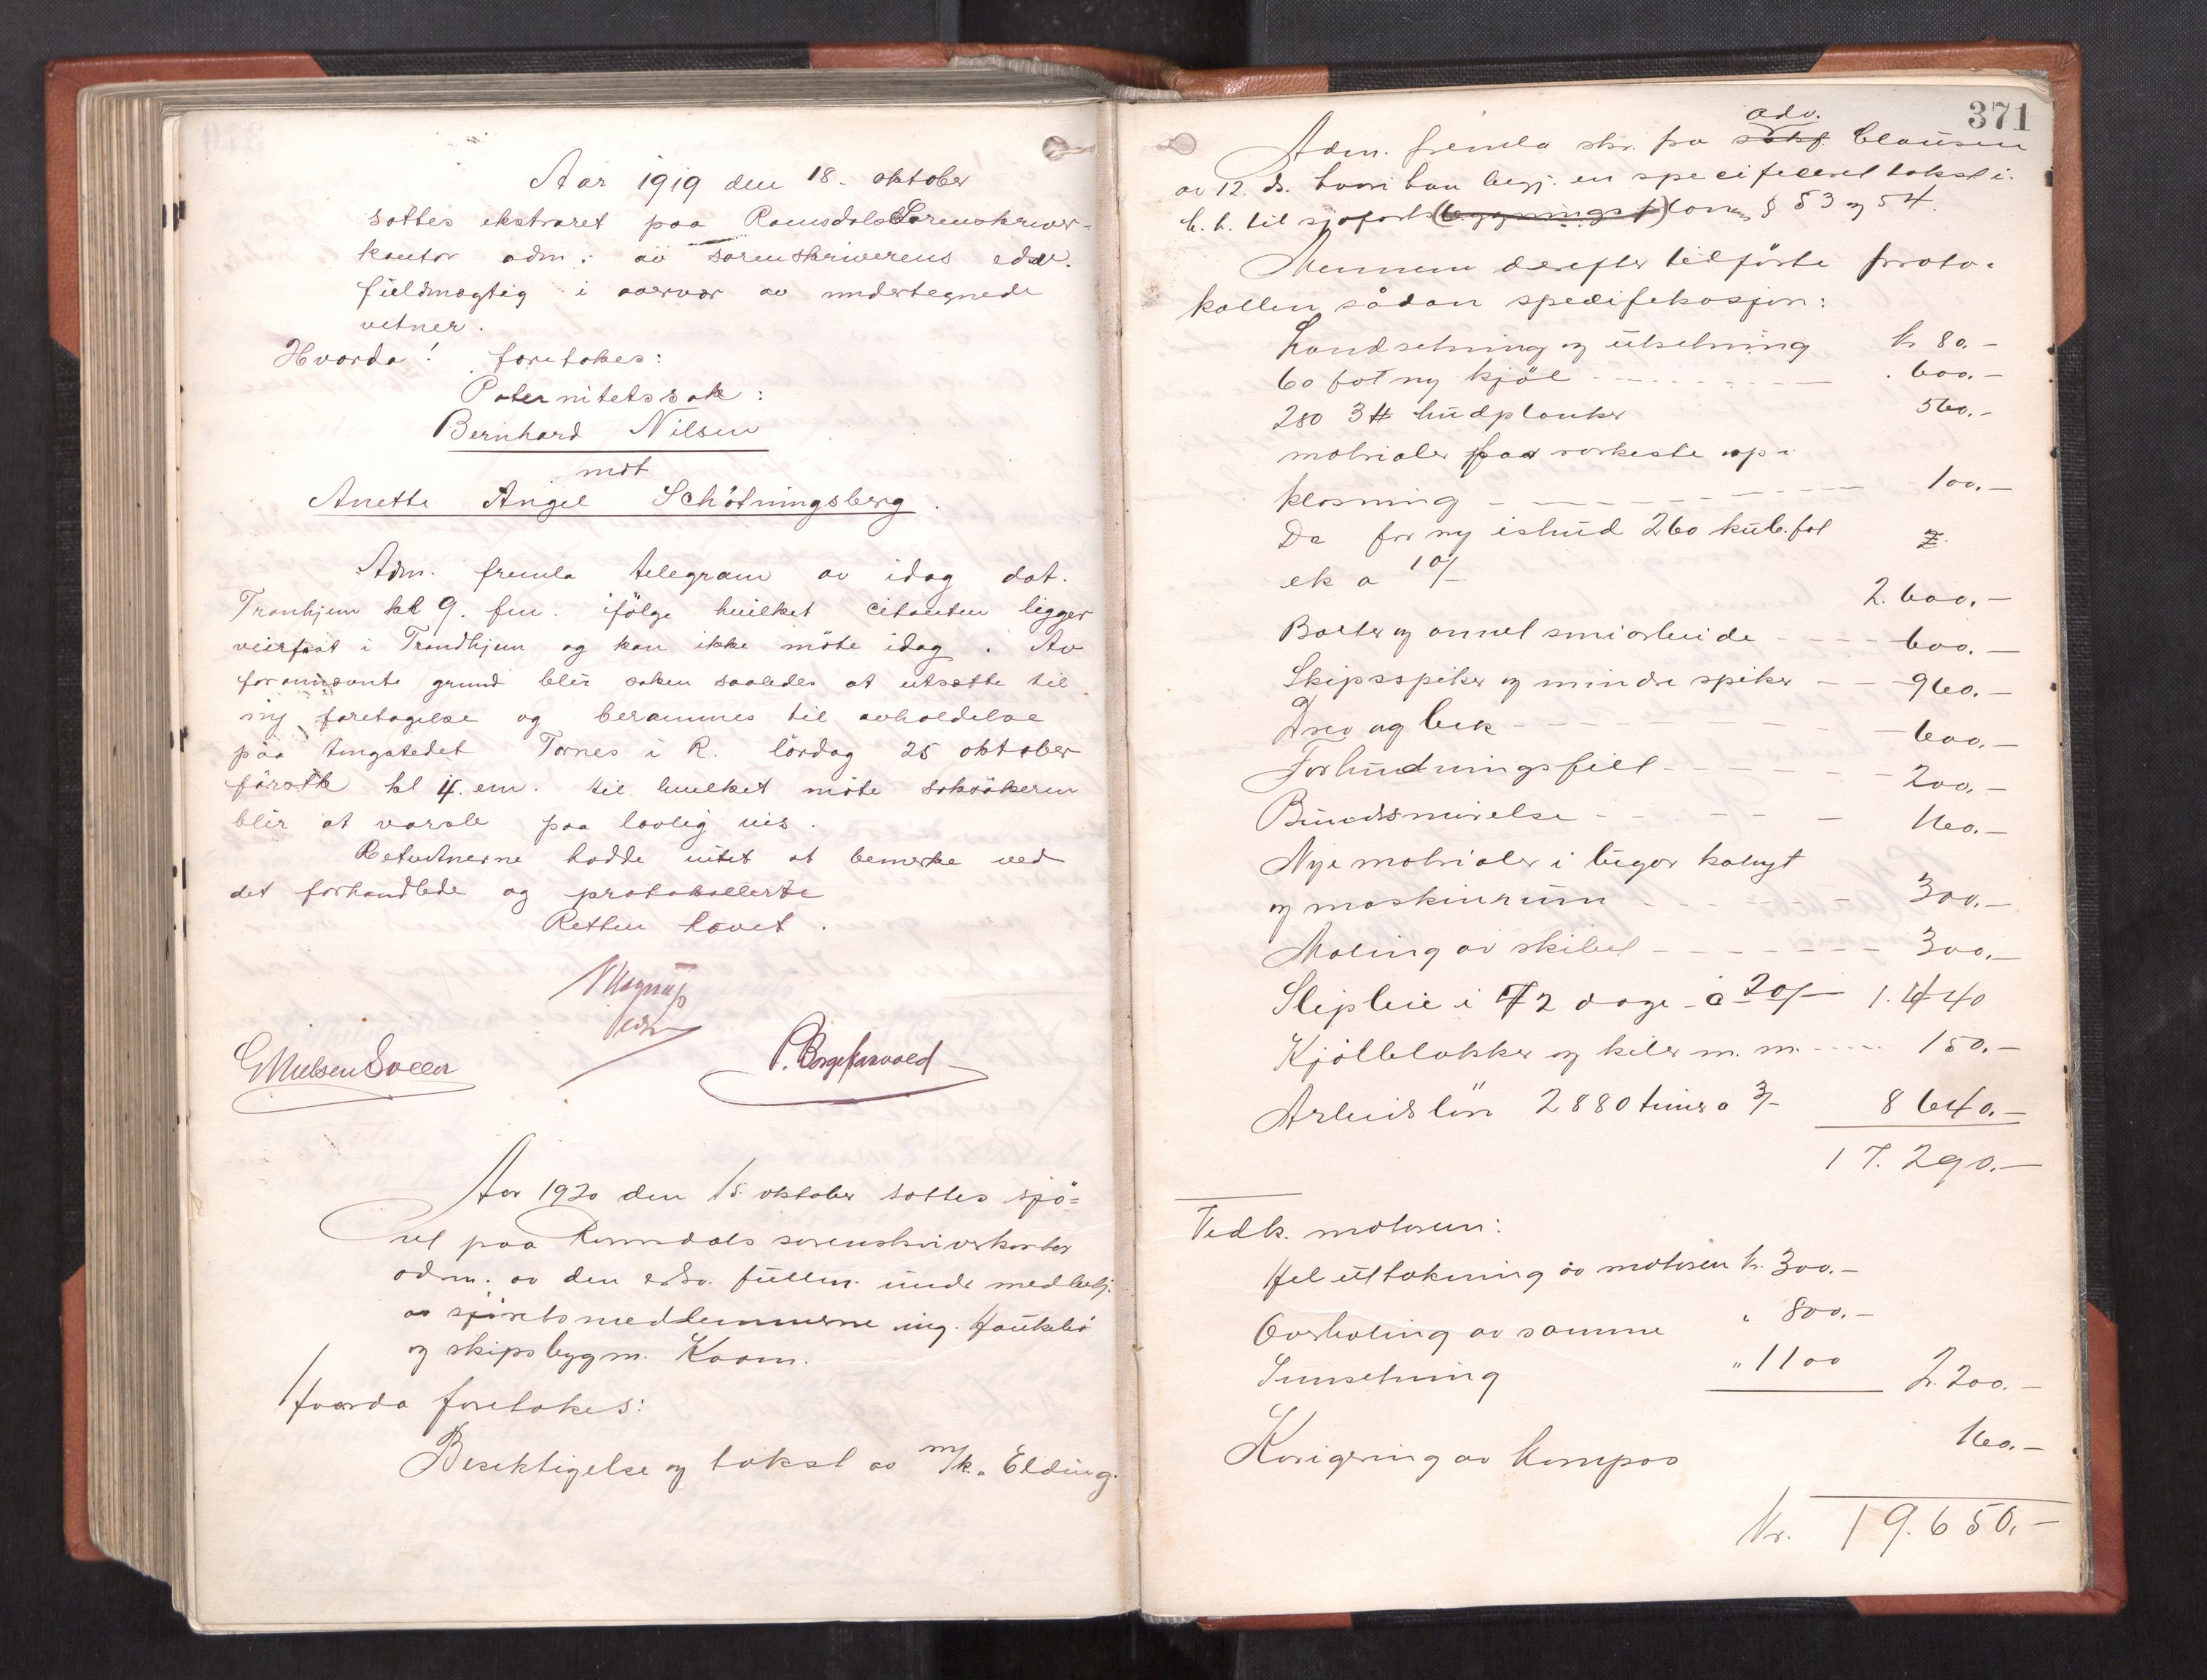 Aar 1919 den 18. oktober
sattes ekstraret paa Romsdals Sorenskriver-
kontor adm. av sorenskriverens edsv.
fuldmægtig i nærvær av undertegnede
vitner.
Hvorda! foretokes:
Paternitetssak:
Bernhard Nilsen
mot
Anette Angel Schötningsberg.
Adm. fremla telegram av idag dat.
Tronhjem kl 9. fm. ifölge hvilket citanten ligger
veirfast i Trondhjem og kan ikke möte idag. Av
foranförte grund blir saken saaledes at utsætte til
ny foretagelse og berammes til avholdelse
paa tingstedet Tornes i R. lördag 25 oktober
förstk kl 4. em. til hvilket möte saksökeren
blir at varsle paa lovlig vis.
Retsvitnerne hadde intet at bemerke ved
det forhandlede og protokollerte
Retten hævet.
Magnus
edsv.
G Nielsen Soller
P. Borgersvold
Aar 1920 den 15. oktober sattes sjö-
ret paa Romsdals sorenskriverkontor
adm. av den edsv. fullm. under medbetj.
av sjöretsmedlemmerne ing. Haukebö
og skipsbygm. Kaarn.
Hvorda foretokes:
Besiktigelse og takst av m/k. "Elding.
371
adv.
Adm. fremla skr. fra sakf. Clausen
av 12. ds. hvori han begj. en specificeret takst i.
h. t. til sjöfarts(bygnings)loven § 53 og 54.
Mennene derefter tilförte proto-
kollen sådan spesifikasjon:
Landsetning og utsetning kr 80.-
60 fot ny kjöl - - - - 600.-
280 3# hudplanker 560.-
matrialer for verkeste op-
klosning - - - - 100.-
Do for ny ishud 260 kub.fot
ek a 10/- 2.600.-
Bolter og annet smiarbeide - - - 600.-
Skipsspiker og mindre spiker - - 960.-
Drev og bek - - - - 600.-
Forhudningsfilt - - - - 200.-
Bundsmörelse - - - - 160.-
Nye matrialer i lugar kahyt
og maskinrum - - - - 300.-
Maling av skibet - - - - 300.-
Slipleie i 72 dage à 20/- 1.440
Kjölblokker og kiler m. m. - - - 150.-
Arbeidslön 2880 timer a 3/- 8640.-
17.290.-
Vedk. motoren:
Hel uttakning av motoren kr. 300.-
Overhaling av samme " 800.-
Innsetning " 1100 2.200.-
Korigering av kompas 160.-
Kr. 19.650.-